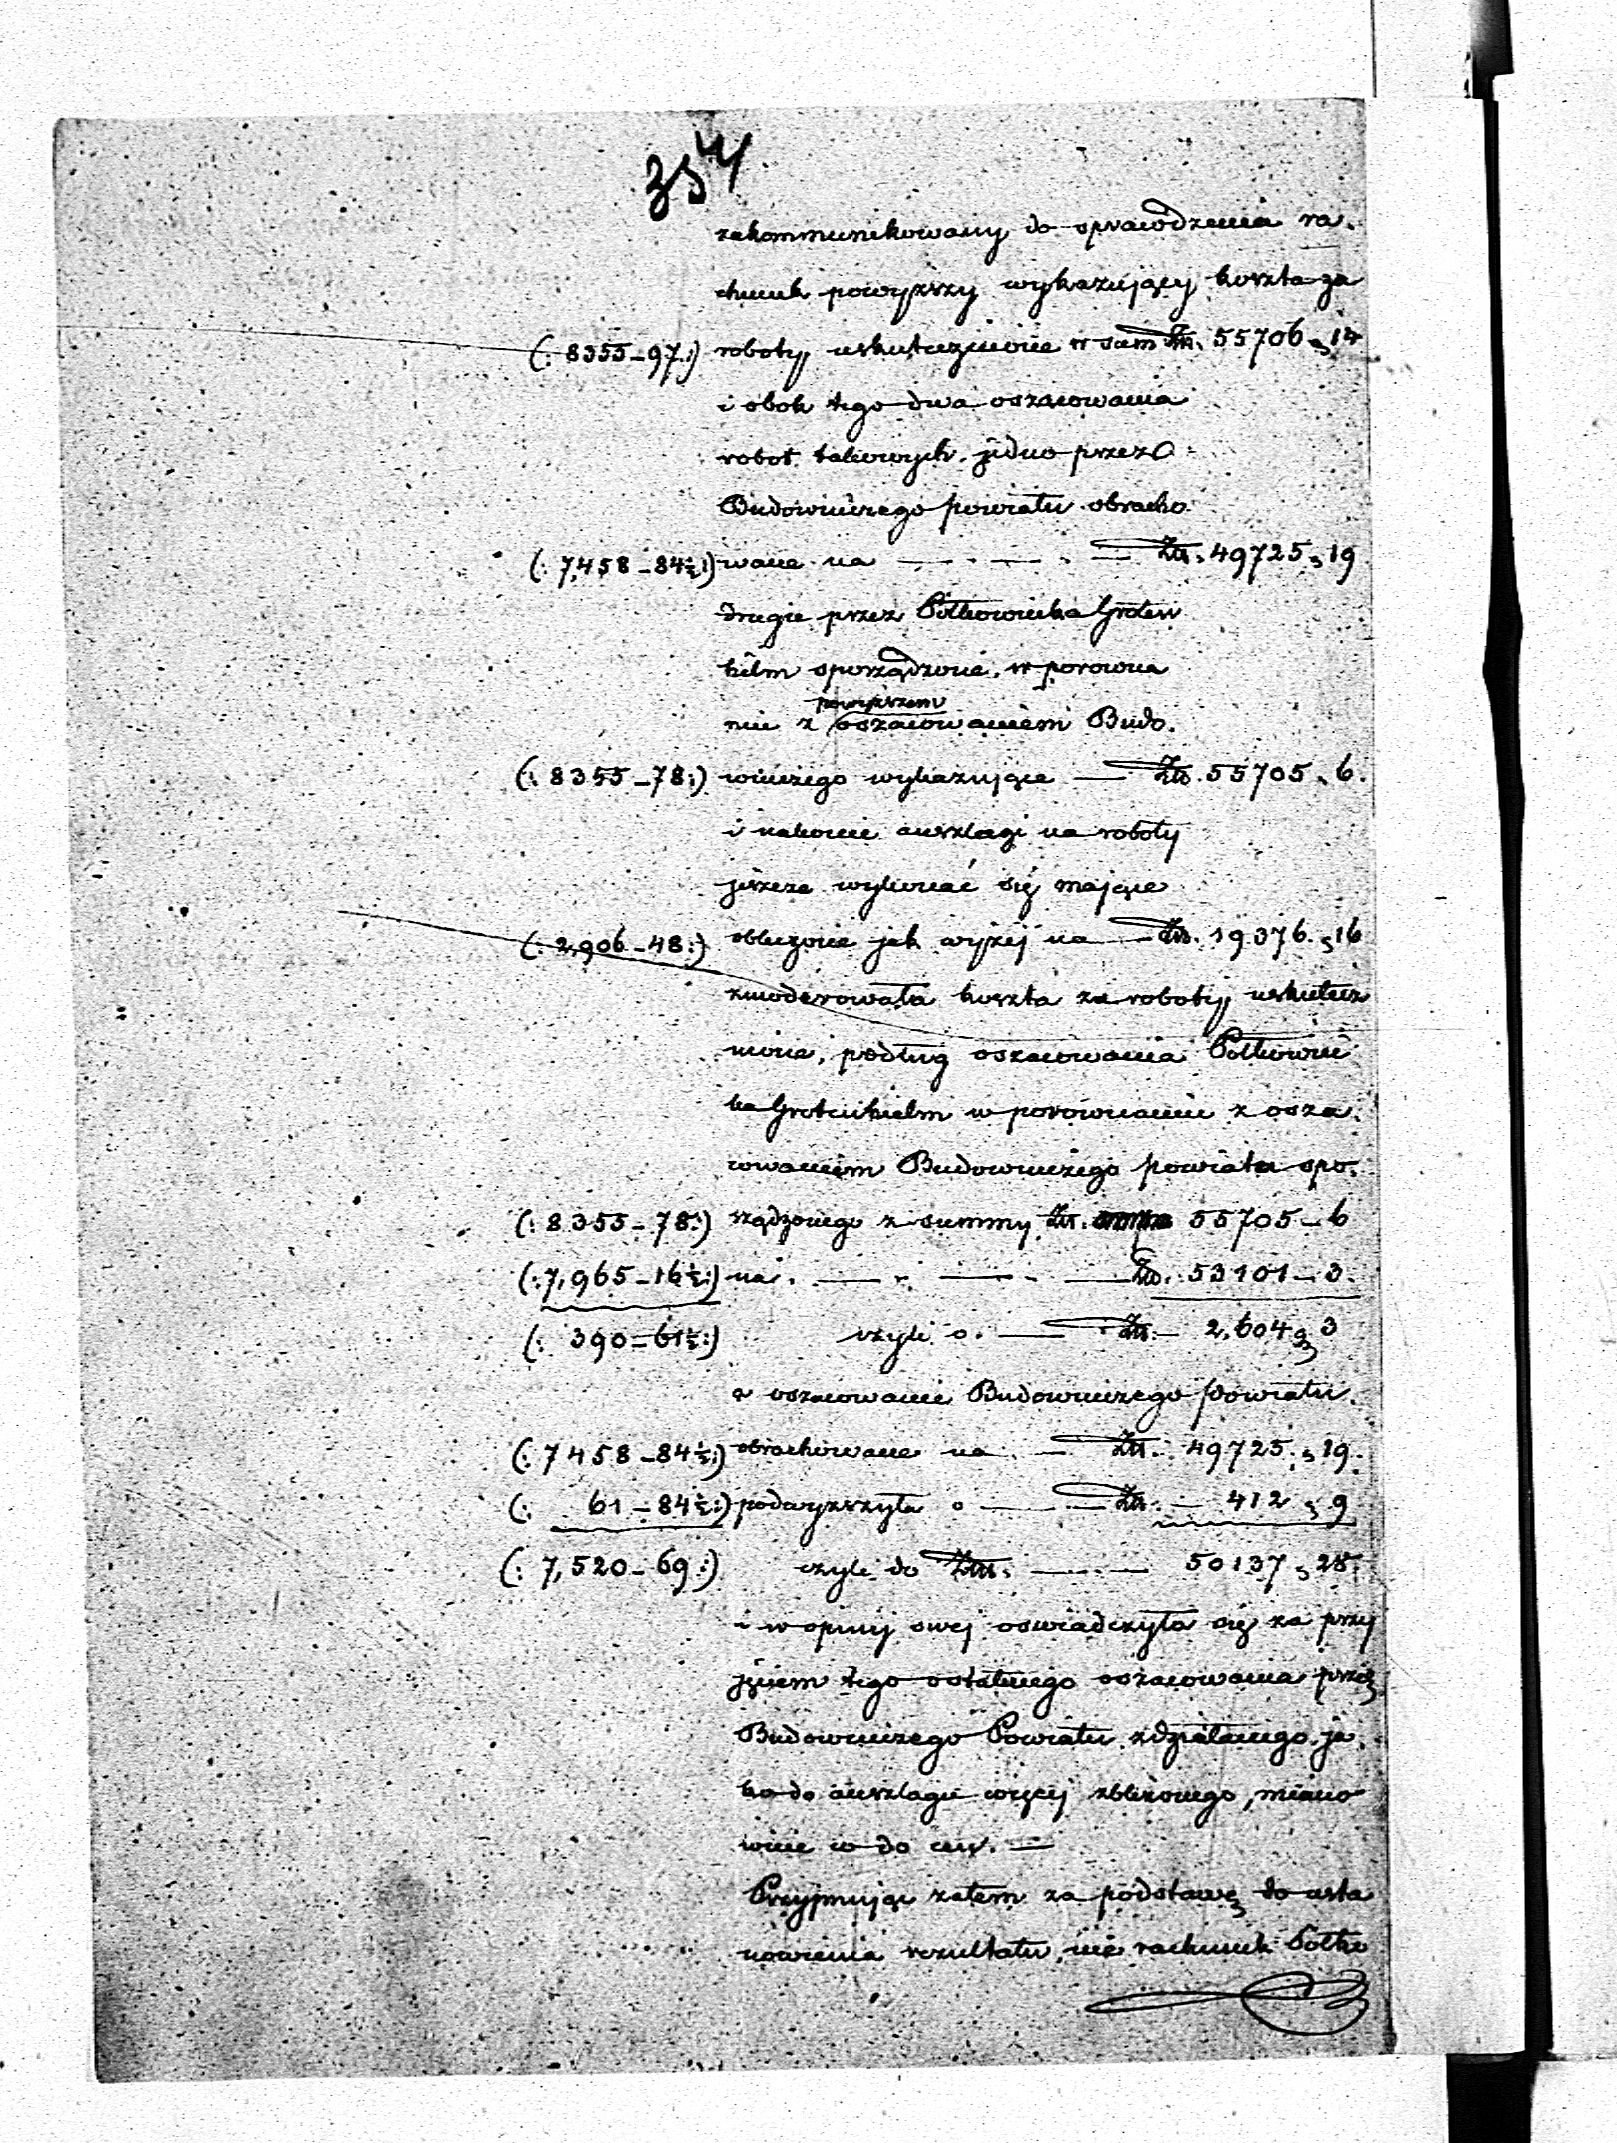 354
zakommunikowany do sprawdzenia ra.
chunek powyższy wykazujący koszta za
(: 8355-97.:) roboty uskutecznione w sum Złt. 55706 „ 14
i obok tego dwa oszacowania
robot takowych. jedno przez
Budowniczego powiatu obracho
(: 7,458-84½:) wane na — — — Złt. 49725 „ 19
drugie przez Półkownika Groten
hélm sporządzone, w porówna
powyższem
nie z oszacowaniem Budo.
(: 8355-78:) wniczego wykazujące — Złt. 55705 „ 6.
i nakoniec anszlagi na roboty
jeszcze wykonać się mające
(: 2,906-48:) obliczone jak wyżej na — Złt. 19.376. „ 16
zmoderowała koszta za roboty uskutecz
nione, podług oszacowania Połkowni
ka Grotenhielm w porównaniu z osza
cowaniem Budowniczego powiatu spo.
(: 8355-78:) rządzonego z summy Złt. 55705 - 6
(: 7,965-16½:) na. — — — Złt. 53101 - 3.
(: 390-61½:) czyli o. — Złt. — 2,604 „ 3
a oszacowanie Budowniczego Powiatu.
(: 7458-84½:) obrachowane na — Złt. 49725. „ 19.
(: 61-84½:) podwyższyła o — — Złt. — 412 „ 9
(: 7,520-69:) czyli do Złt. — — 50137 „ 28
i w opinij swej oswiadczyła się za przy
jęciem tego ostatniego oszacowania przez
Budowniczego Powiatu zdziałanego, ja.
ko do anszlagu więcej zbliżonego, miano
wicie co do cen. —
Przyjmując zatem za podstawę do usta
nowienia rezultatu, nie rachunek Połko